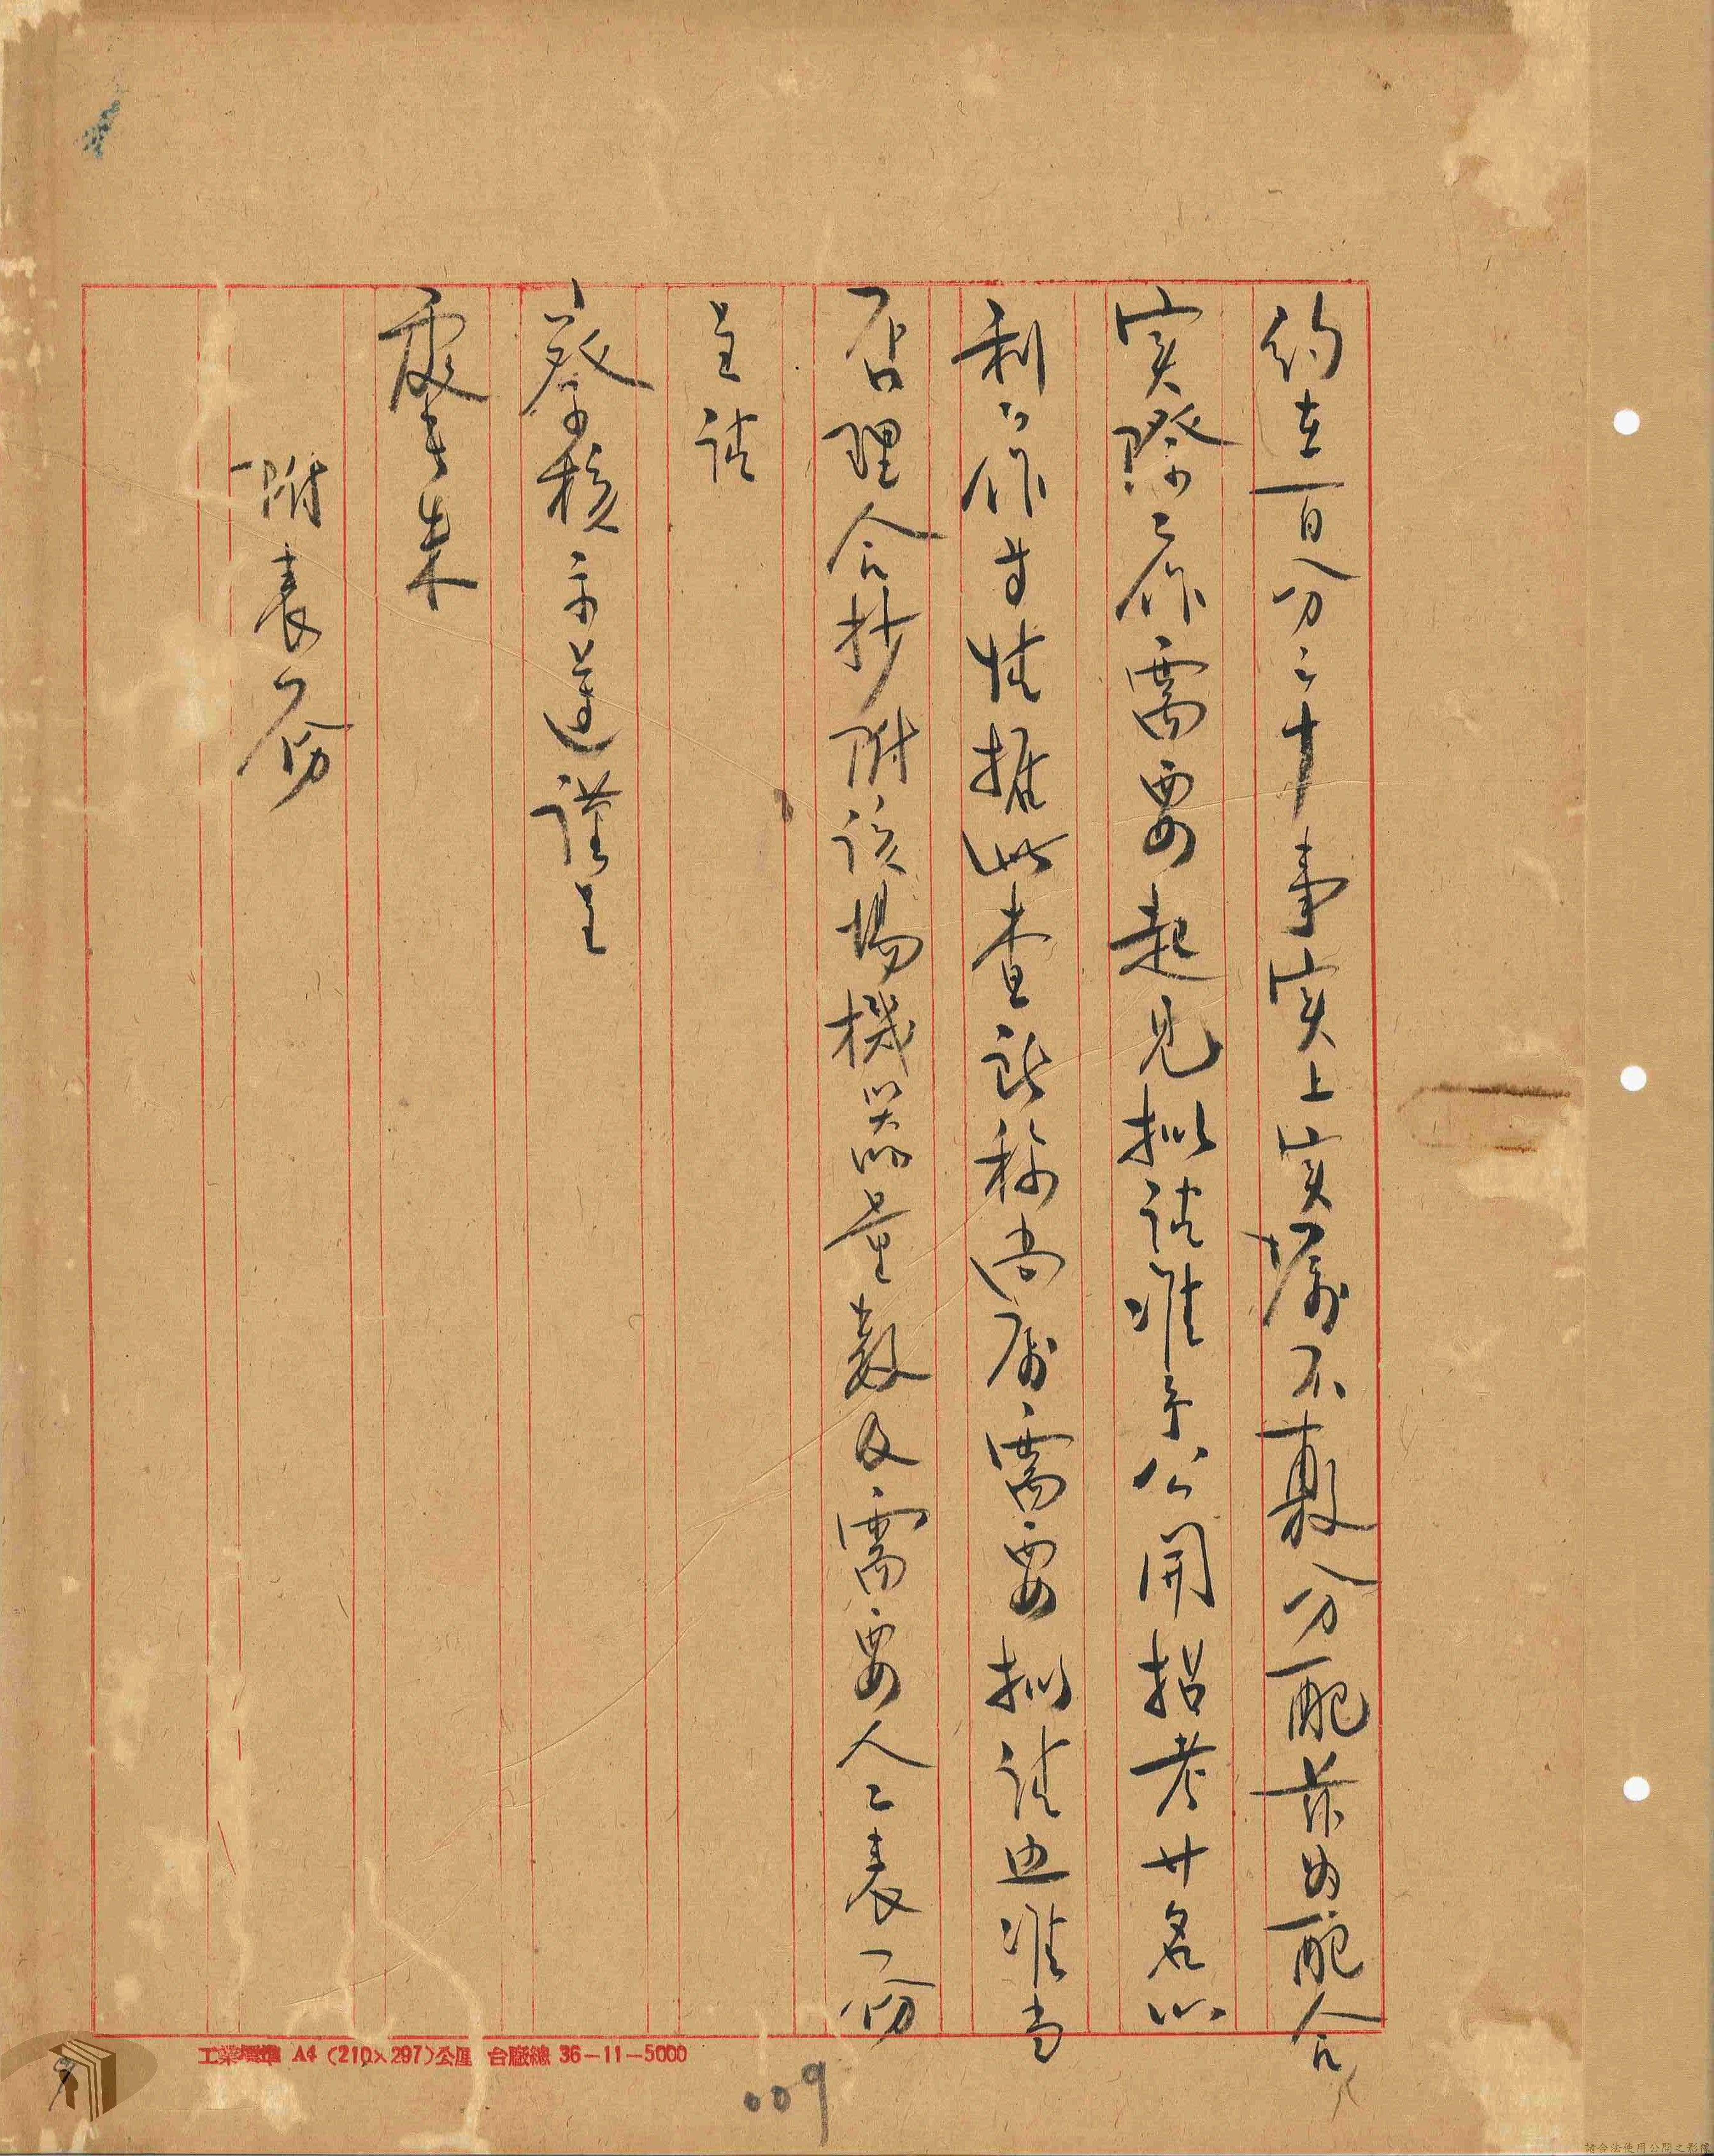 約在百分之十事實上實屬不敷分配茲為配合
实際工作需要起見拟請准予公開招考廿名以
利工作等情據此查所称尚屬需要拟請迅准当
否理合抄附該場機器量数及需要人工表一份
呈請
察核示遵謹呈
處長朱
附表一份
工業標準 A4 (210×297)公厘 台廠總 36-11-5000
009
請合法使用公開之影像